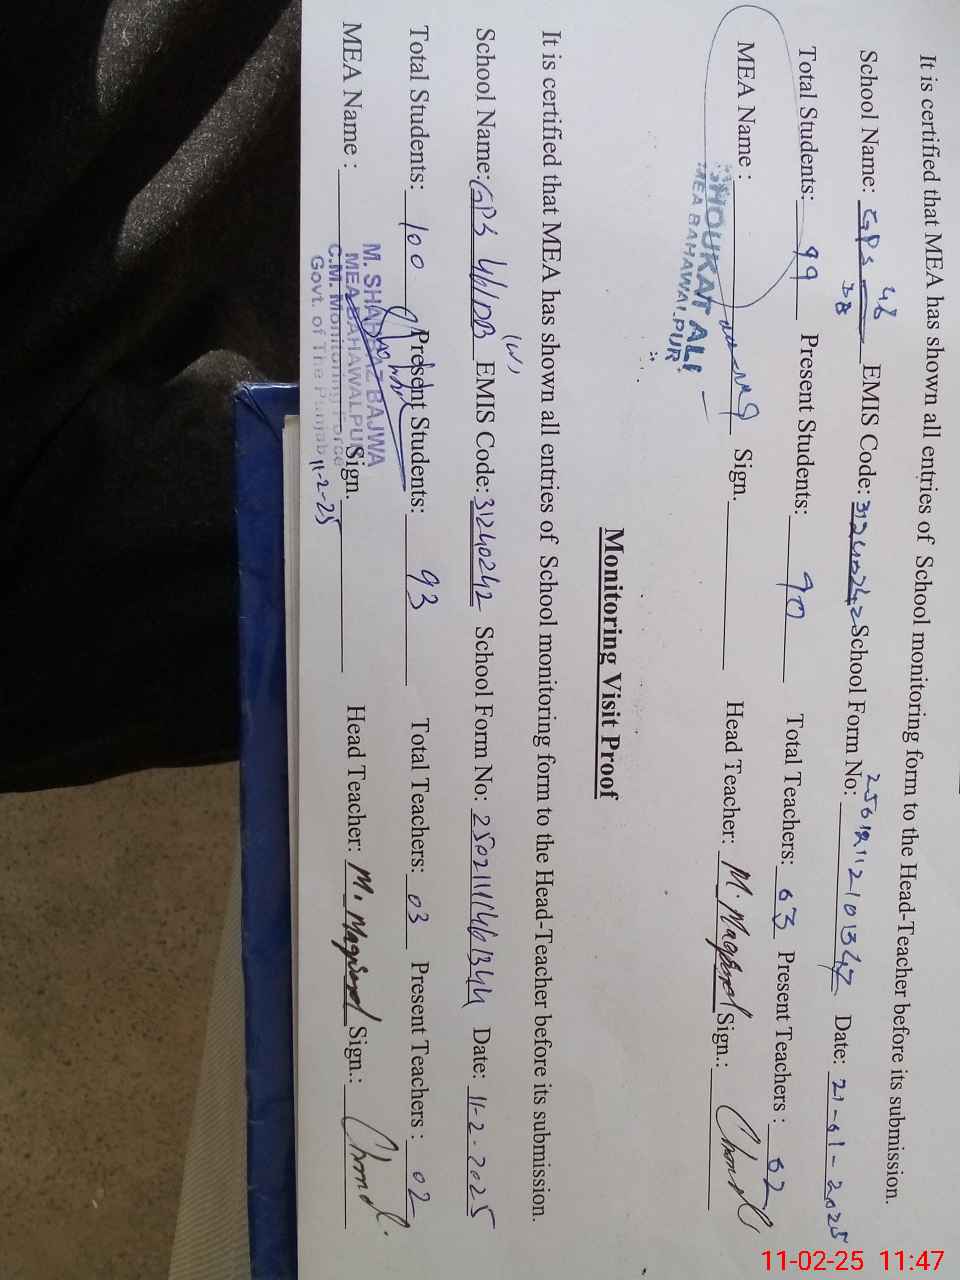 It is certified that MEA has shown all entries of School monitoring form to the Head-Teacher before its submission.
School Name: GPS 48 DB EMIS Code: 31240242 School Form No: Date: 21-01-2025
Total Students: 99 Present Students: 90 Total Teachers: 03 Present Teachers : 02
MEA Name : Sign. Head Teacher: M. Maqsood Sign.:
SHOUKAT ALI
MEA BAHAWALPUR
Monitoring Visit Proof
It is certified that MEA has shown all entries of School monitoring form to the Head-Teacher before its submission.
School Name: GPS EMIS Code: 31240242 School Form No: Date: 11-2-2025
Total Students: 100 Present Students: 93 Total Teachers: 03 Present Teachers : 02
MEA Name : Sign. Head Teacher: M. Maqsood Sign.:
M. SHAHBAZ BAJWA
MEA BAHAWALPUR
C.M. Monitoring Force
Govt. of The Punjab
11-2-25
11-02-25 11:47